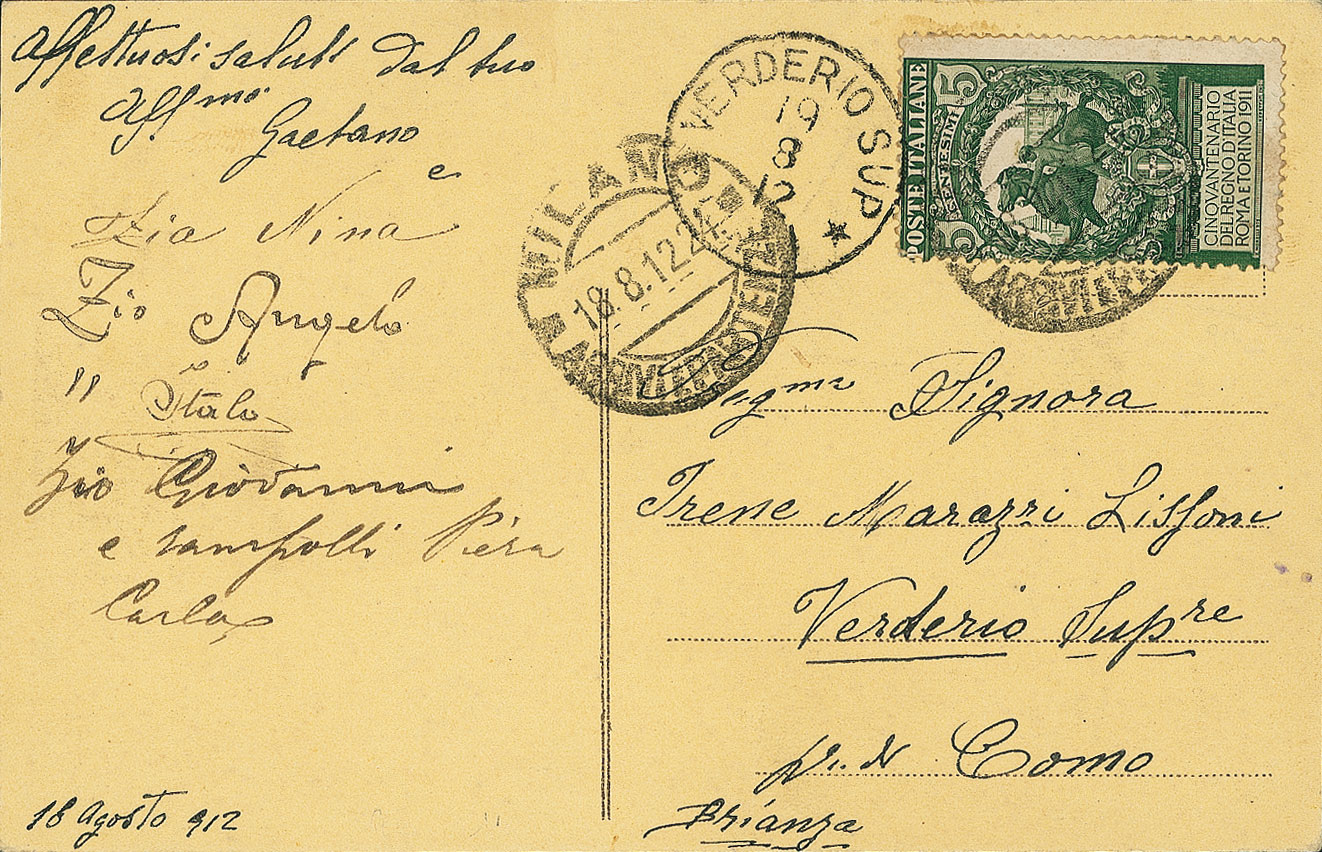 Affettuosi saluti dal tuo
Aff.mo
Gaetano
e
Zia Nina
Zio Angelo
" Italo
Zio Giovanni
e Piera
Carla
18 Agosto 912
VERDERIO SUP
19
8
12
MILANO
18.8.12 24
POSTE ITALIANE
5 CENTESIMI 5
CINQVANTENARIO
DEL REGNO D'ITALIA
ROMA E TORINO 1911
Signora
Irene Marazzi Lissoni
Verderio Supre
Como
Brianza